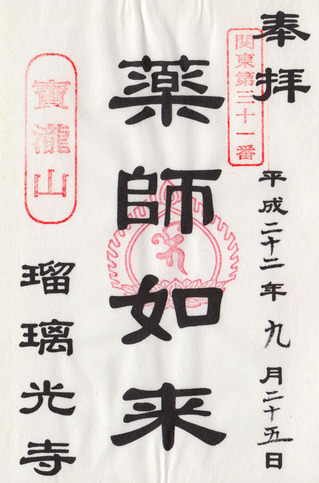 奉拝
関東第三十一番
平成二十二年九月二十五日
薬師如来
寳瀧山
瑠璃光寺